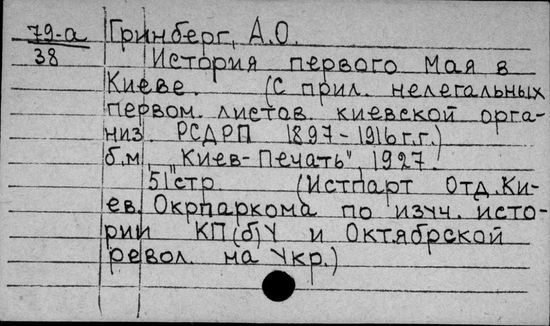 79-а Гринберг, А.О.
38 История первого Мая в
Киеве. (С прил. нелегальных
первом. листов. киевской орга-
низ. РСДРП 1897-1916г.г.)
б.м. „Киев-Печать", 1927.
51 стр (Истпарт Отд. Ки-
ев. Окрпаркома по изуч. исто-
рии КП(б)У и Октябрской
револ. на Укр.)